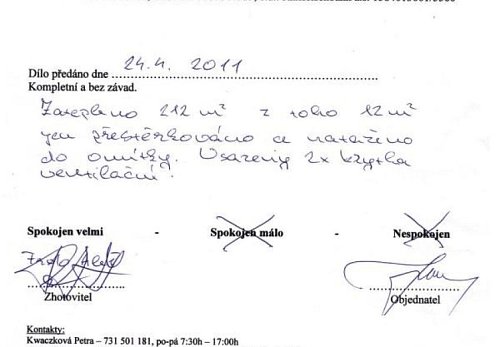 Dílo předáno dne 24.4. 2011
Kompletní a bez závad.
Zatepleno 212 m² z toho 12 m²
jen přestěrkováno a nataženo
do omítky. Osazeny 2x krytka
ventilační.
Spokojen velmi - Spokojen málo - Nespokojen
Zhotovitel Objednatel
Kontakty:
Kwaczková Petra – 731 501 181, po-pá 7:30h – 17:00h